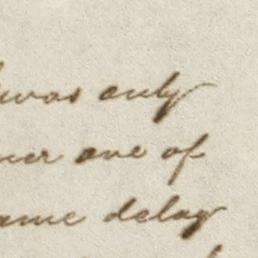 was only
one of
ame delay